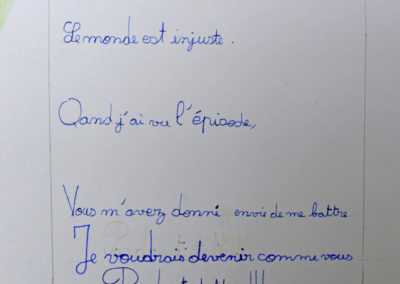 Le monde est injuste.
Qand j'ai vu l'épisode,
Vous m'avez donné envie de me battre
Je voudrais devenir comme vous